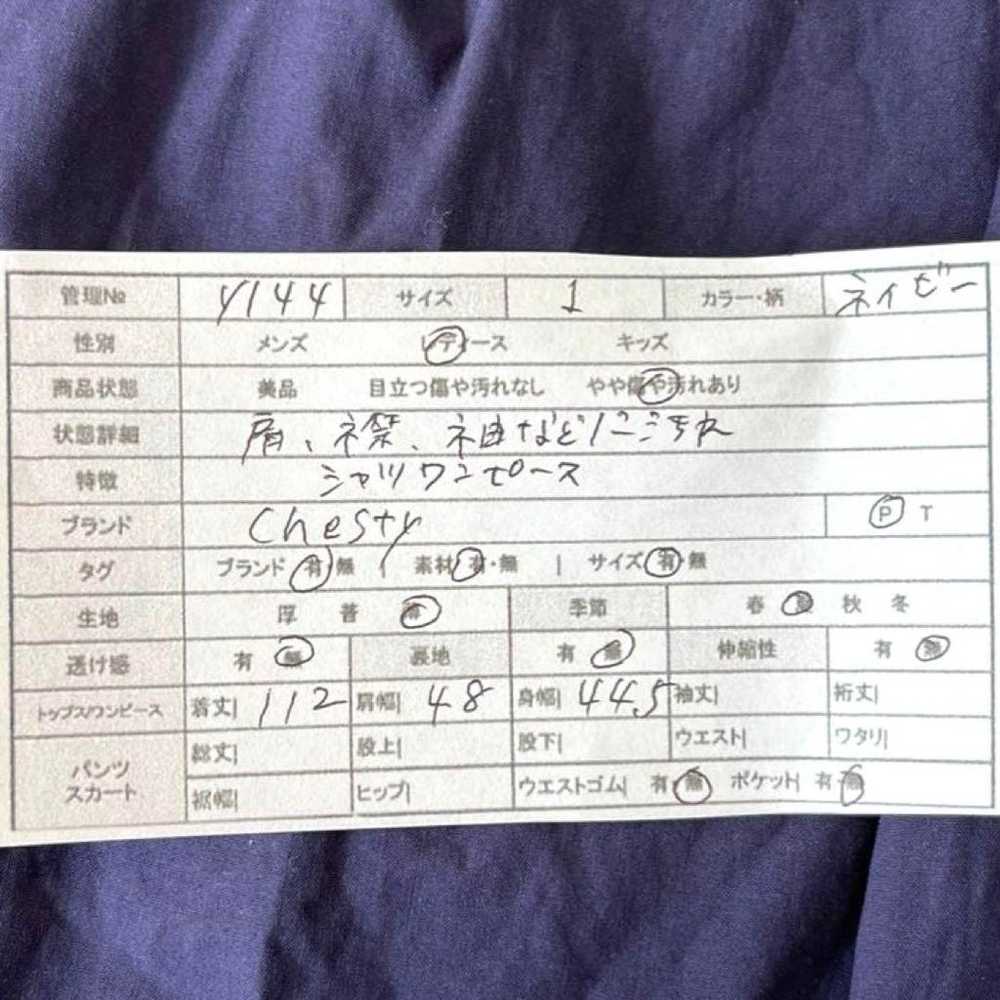 管理№ Y144 サイズ 1 カラー・柄 ネイビー
性別 メンズ レディース キッズ
商品状態 美品 目立つ傷や汚れなし やや傷や汚れあり
状態詳細 肩、襟、袖などに汚れ
特徴 シャツワンピース
ブランド Chesty P T
タグ ブランド 有・無 | 素材 有・無 | サイズ 有・無
生地 厚 普 薄 季節 春 夏 秋 冬
透け感 有 無 裏地 有 無 伸縮性 有 無
トップス/ワンピース 着丈| 112 肩幅| 48 身幅| 44.5 袖丈| 裄丈|
パンツ スカート 総丈| 股上| 股下| ウエスト| ワタリ|
裾幅| ヒップ| ウエストゴム| 有 無 ポケット| 有 無